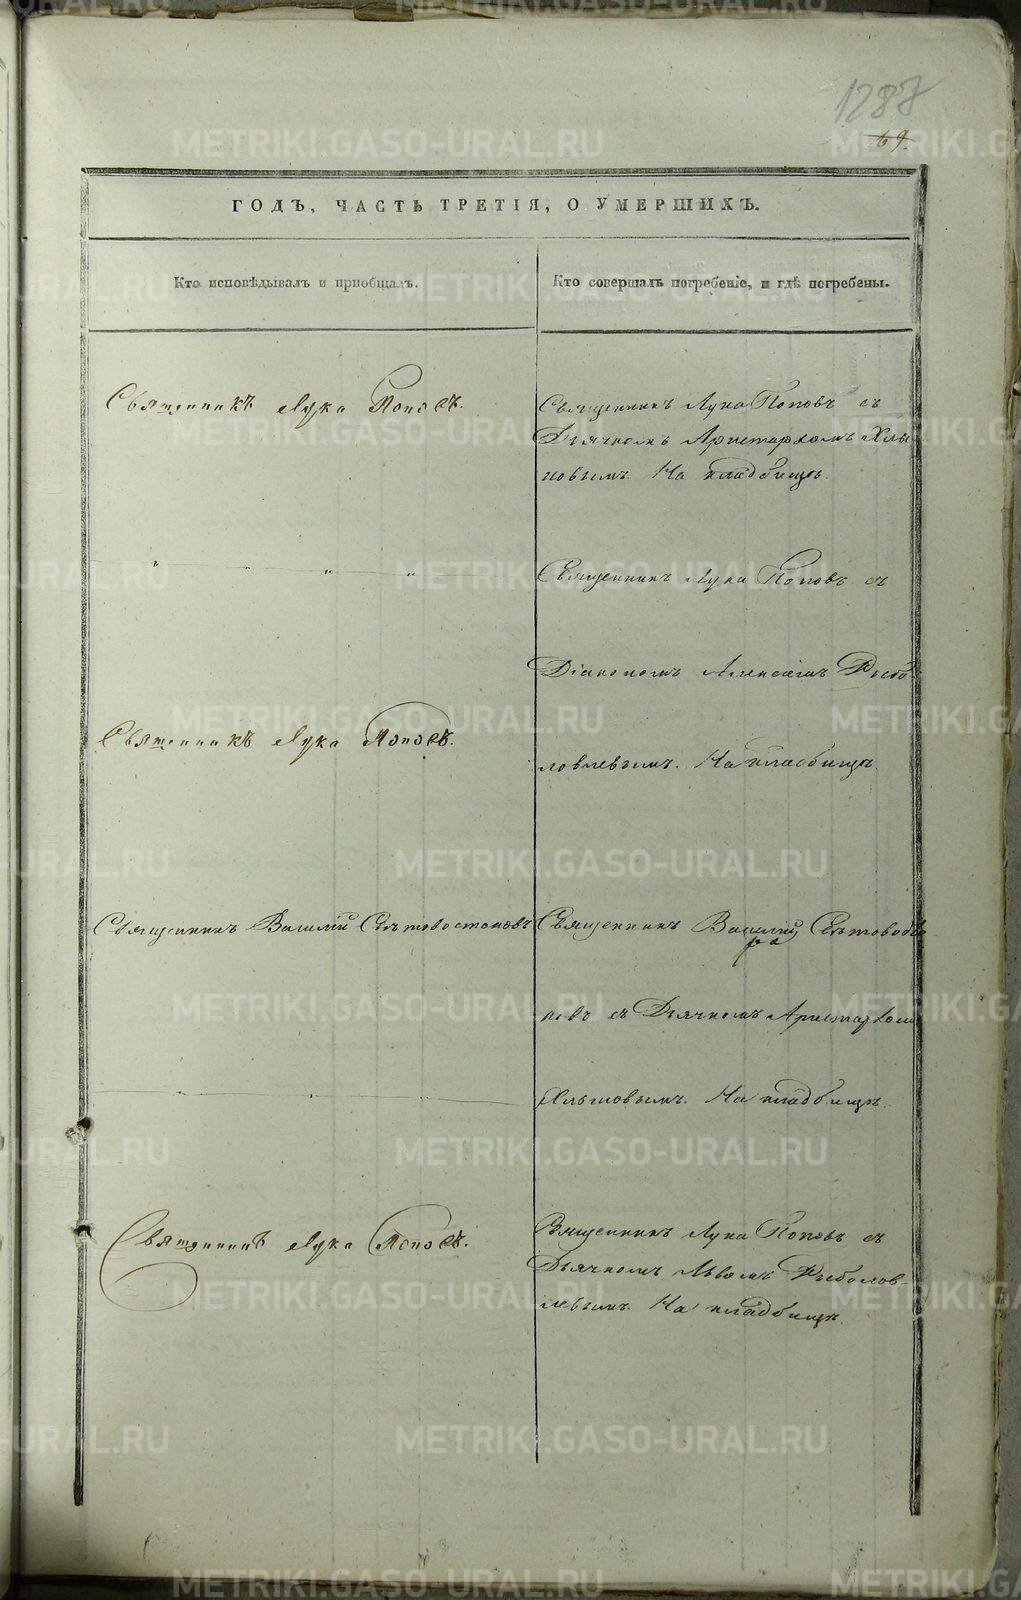 1287
69.
ГОДЪ, ЧАСТЬ ТРЕТІЯ, О УМЕРШИХЪ.
Кто исповѣдывалъ и пріобщалъ.
Кто совершалъ погребеніе, и гдѣ погребены.
Священникъ Лука Поповъ.
Священникъ Лука Поповъ съ
Дьячкомъ Аристархомъ Хлы
новымъ. На кладбищѣ.
" " " "
Священникъ Лука Поповъ съ
Діакономъ Алексіемъ Рыбо
Священникъ Лука Поповъ.
ловлевымъ. На кладбищѣ.
Священникъ Василій
Священникъ Василій
новъ съ Дьячкомъ Аристархомъ
" "
Хлыновымъ. На кладбищѣ.
Священникъ Лука Поповъ.
Священникъ Лука Поповъ съ
Дьячкомъ Львомъ Рыболов-
левымъ. На кладбищѣ.
METRIKI.GASO-URAL.RU